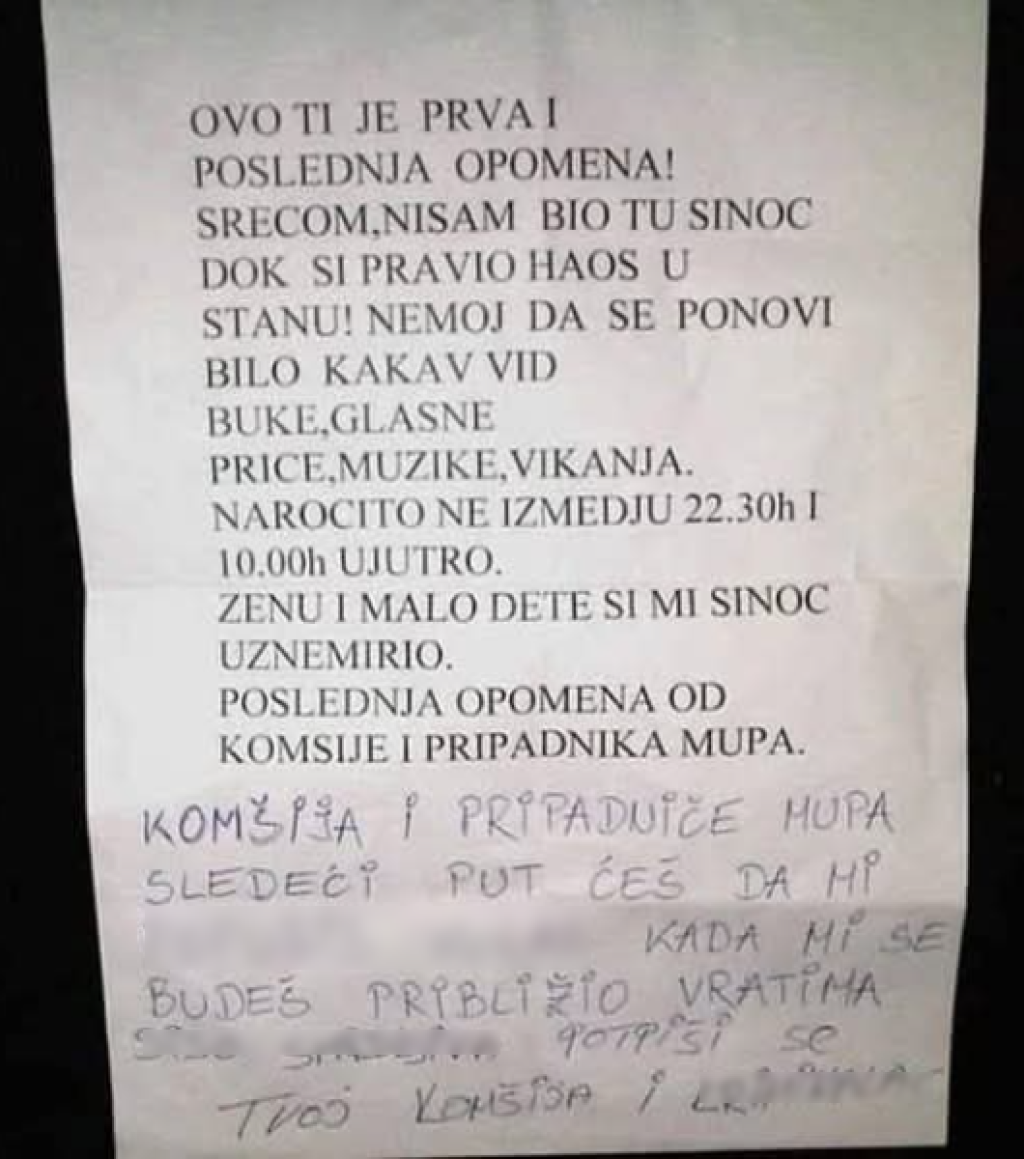 OVO TI JE PRVA I
POSLEDNJA OPOMENA!
SRECOM,NISAM BIO TU SINOC
DOK SI PRAVIO HAOS U
STANU! NEMOJ DA SE PONOVI
BILO KAKAV VID
BUKE,GLASNE
PRICE,MUZIKE,VIKANJA.
NAROCITO NE IZMEDJU 22.30h I
10.00h UJUTRO.
ZENU I MALO DETE SI MI SINOC
UZNEMIRIO.
POSLEDNJA OPOMENA OD
KOMSIJE I PRIPADNIKA MUPA.
KOMŠIJA I PRIPADNIČE MUPA
SLEDEĆI PUT ĆEŠ DA MI
KADA MI SE
BUDEŠ PRIBLIŽIO VRATIMA
POTPIŠI SE
TVOJ KOMŠIJA I